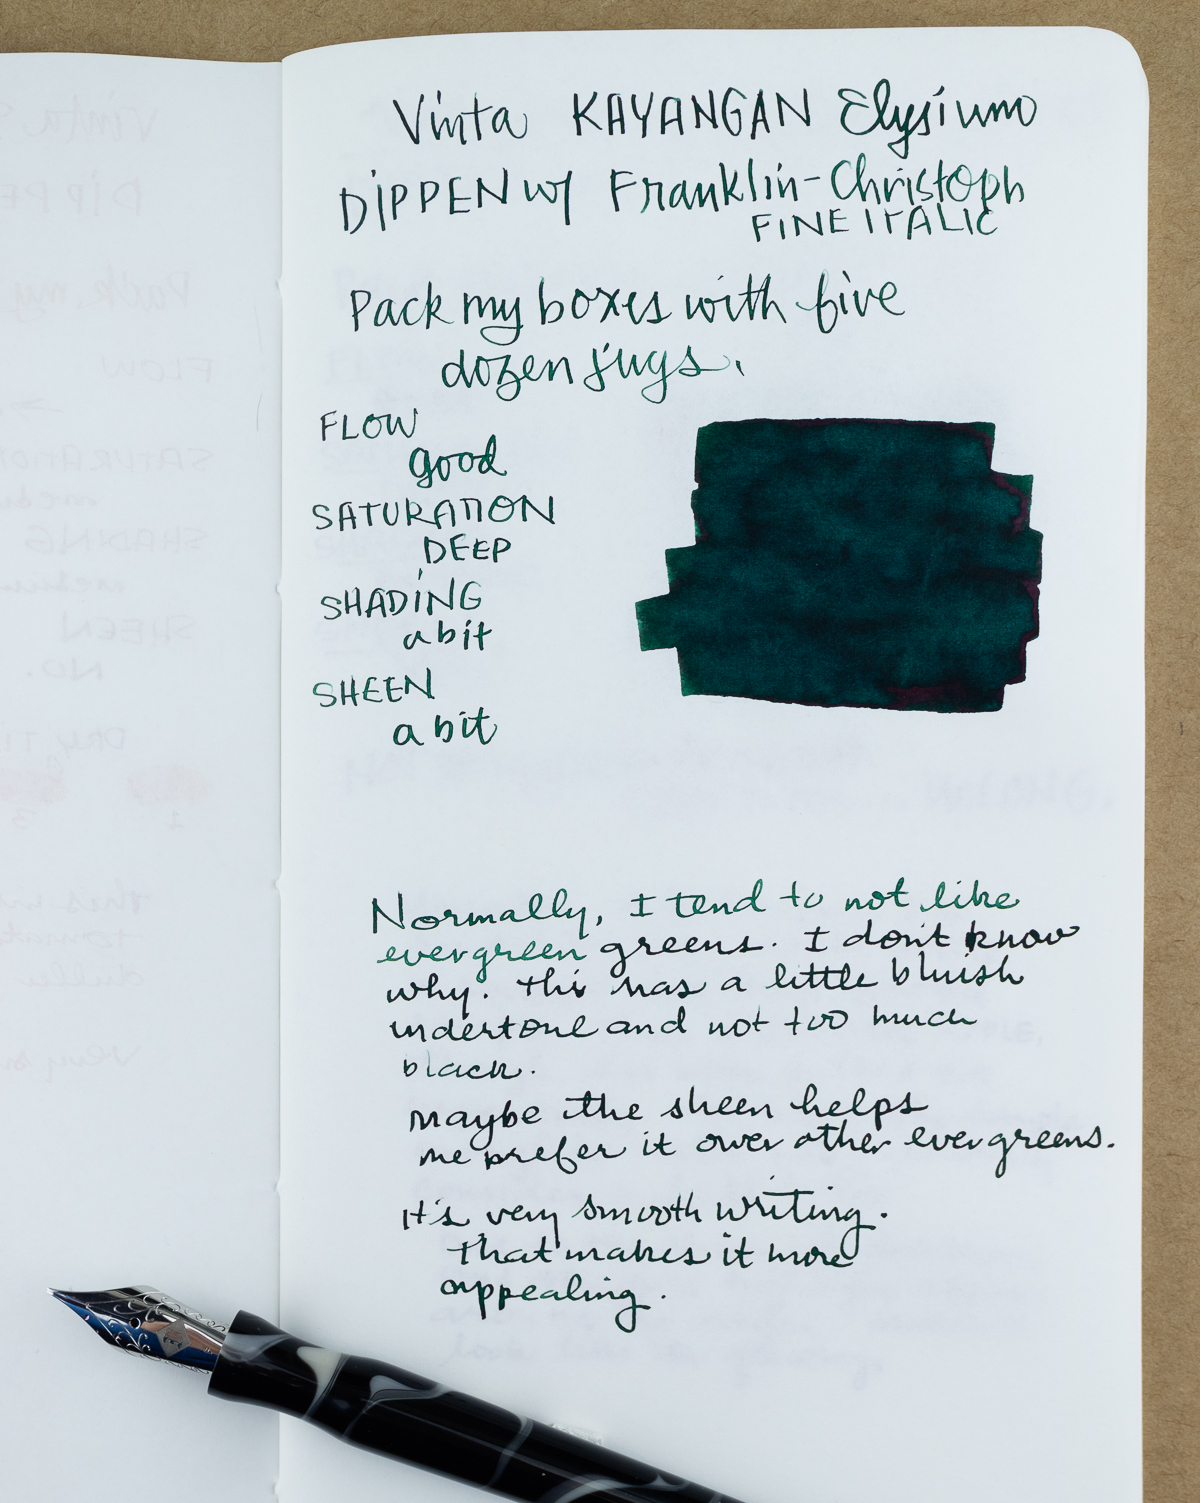 Vinta KAYANGAN Elysium
DIPPEN w/ Franklin-Christoph
FINE ITALIC
Pack my boxes with five
dozen jugs.
FLOW
good
SATURATION
DEEP
SHADING
a bit
SHEEN
a bit
Normally, I tend to not like
evergreen greens. I don't know
why. This has a little bluish
undertone and not too much
black.
maybe the sheen helps
me prefer it over other evergreens.
It's very smooth writing.
That makes it more
appealing.